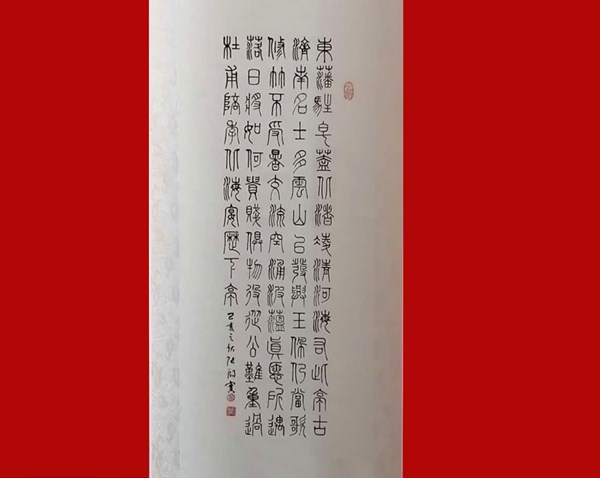 東藩駐皂蓋北渚凌清河海右此亭古
濟南名士多雲山已發興玉佩仍當歌
修竹不受暑交流空涌波蘊真愜所遇
落日將如何貴賤俱物役從公難重過
杜甫陪李北海宴歷下亭
己亥之秋